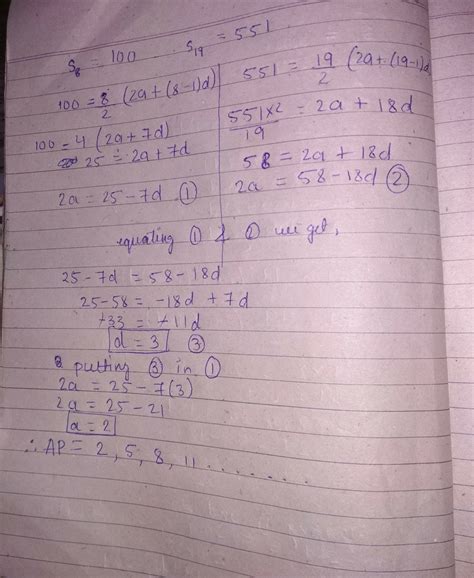 S₈ = 100
100 = 8/2 (2a+(8-1)d)
100 = 4 (2a+7d)
25 = 2a+7d
2a = 25-7d ①
S₁₉ = 551
551 = 19/2 (2a+(19-1)d
551×2/19 = 2a + 18d
58 = 2a + 18d
2a = 58-18d ②
equating ① & ② we get,
25-7d = 58-18d
25-58 = -18d + 7d
+33 = +11d
d = 3 ③
putting ③ in ①
2a = 25-7(3)
2a = 25-21
a = 2
∴ AP = 2, 5, 8, 11 ........